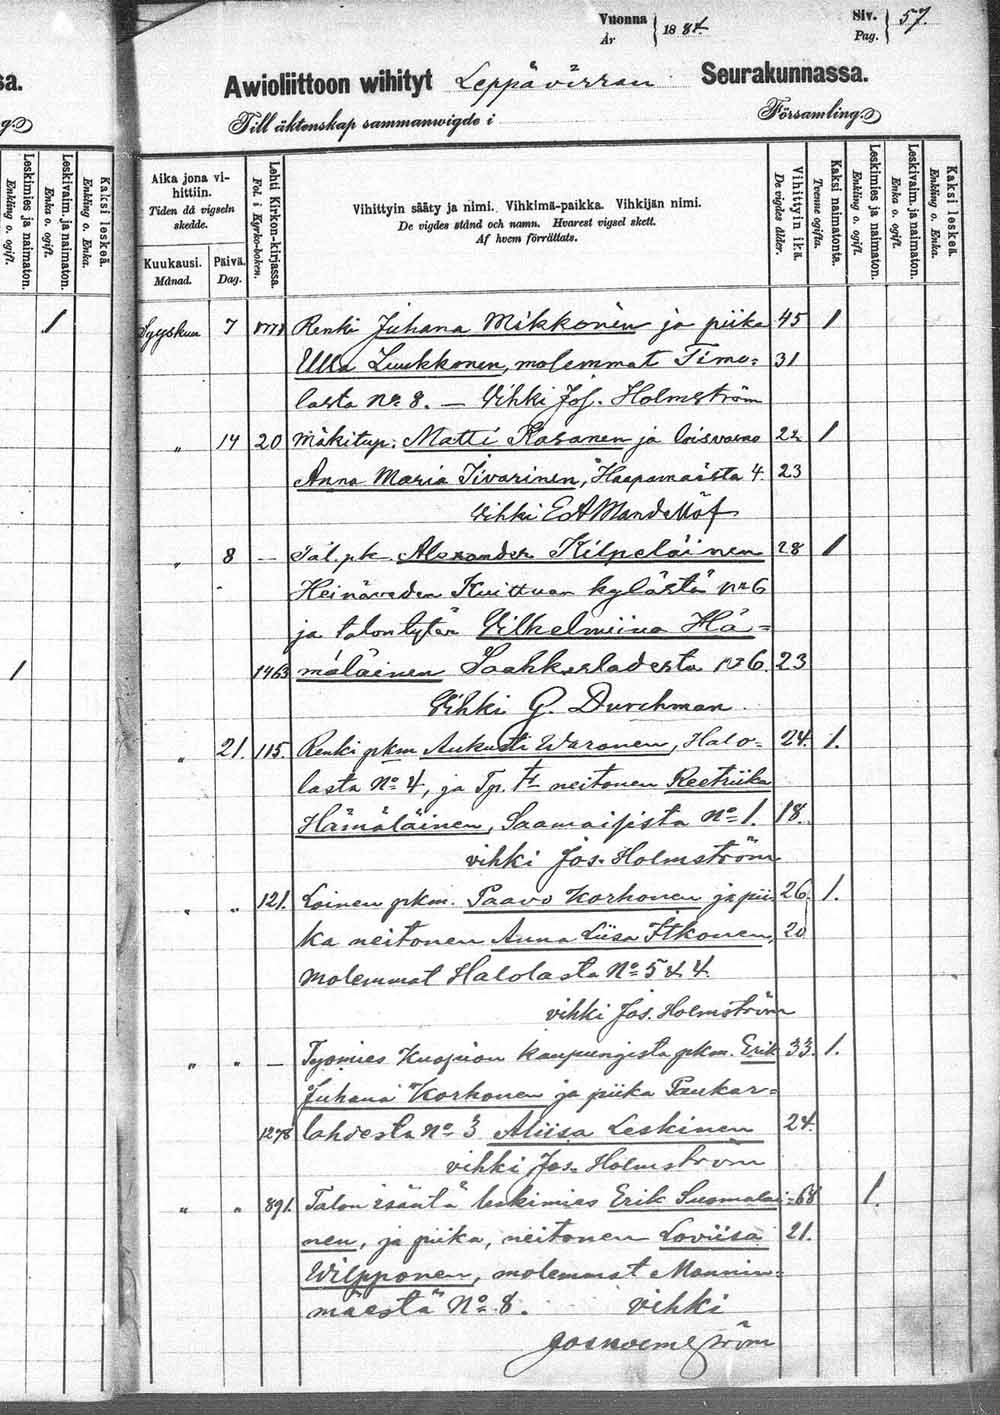 Vuonna
År
1884
Siv.
Pag.
57.
sa.
Awioliittoon wihityt Leppävirran Seurakunnassa.
g.
Till äktenskap sammanwigde i
Församling.
Leskimies ja naimaton.
Enkling o. ogift.
Leskivaim. ja naimaton.
Enka o. ogift.
Kaksi leskeä.
Enkling o. Enka.
Aika jona vi-
hittiin.
Tiden då vigseln
skedde.
Kuukausi.
Månad.
Päivä.
Dag.
Lehti Kirkon-kirjassa.
Fol. i Kyrko-boken.
Vihittyin sääty ja nimi. Vihkimä-paikka. Vihkijän nimi.
De vigdes stånd och namn. Hvarest vigsel skett.
Af hvem förrättats.
Vihittyin ikä.
De vigdes ålder.
Kaksi naimatonta.
Tvenne ogifta.
Leskimies ja naimaton.
Enkling o. ogift.
Leskivaim. ja naimaton.
Enka o. ogift.
Kaksi leskeä.
Enkling o. Enka.
1
Syyskuu 7 Renki Juhana Mikkonen ja piika 45 1
Ulla Luukkonen, molemmat Timo= 31
lasta No 8. — Vihki Jos. Holmström
„ 14 20 Mäkitup. Matti Kasanen ja loisvaimo 22 1
Anna Maria Iivarinen, Haapamäästä 4. 23
Vihki E A Mandellöf
„ 8 — Tal. pk. Alexander Kilpeläinen 28 1
Heinäveden Kuittuan kylästä No 6
ja talontytär Vilhelmiina Hä=
1 1463 mäläinen Saahkarlahdesta No 6. 23
Vihki G. Durchman.
„ 21. 115. Renki pkm Aukusti Waronen, Halo= 24. 1.
lasta No 4, ja Tp. tr neitonen Reetriika
Hämäläinen, Saamaisista No 1. 18.
vihki Jos. Holmström
„ „ 121. Loinen pkm. Paavo Korhonen ja pii 26. 1.
ka neitonen Anna Liisa Itkonen, 20
molemmat Halolasta No 5 & 4.
vihki Jos. Holmström
„ „ — Työmies Kuopion kaupungista pkm. Erik 33. 1.
Juhana Korhonen ja piika Paukar=
1278 lahdesta No 3 Aliisa Leskinen 24.
vihki Jos. Holmström
„ „ 891. Talon isäntä leskimies Erik Suomalai= 68 1.
nen, ja piika, neitonen Loviisa 21.
Wilpponen, molemmat Mannin=
mäestä No 8. vihki
Jos Holmström